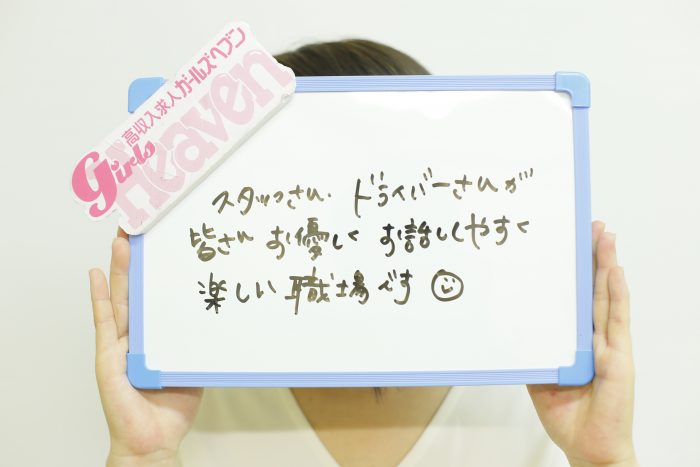 高収入求人ガールズヘブン
Girls
Heaven
スタッフさん、ドライバーさんが
皆さんお優しくお話ししやすく
楽しい職場です